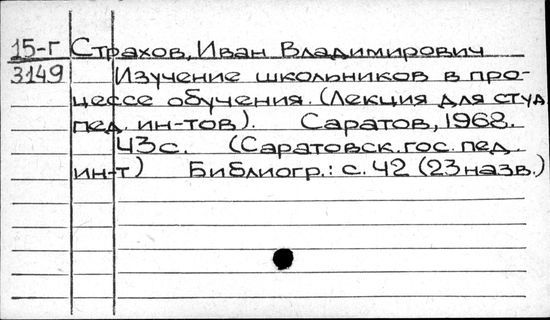 15-г Страхов, Иван Владимирович
3149 Изучение школьников в про-
цессе обучения. (Лекция для студ.
пед. ин-тов). Саратов, 1968.
43 с. (Саратовск. гос. пед.
ин-т) Библиогр.: с. 42 (23 назв.)